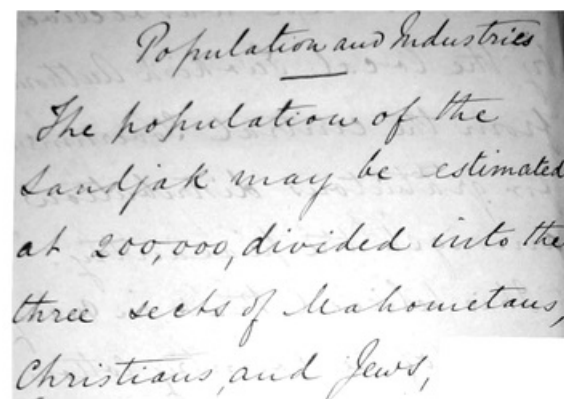 Population and Industries
The population of the
Sandjak may be estimated
at 200,000, divided into the
three sects of Mahometans,
Christians, and Jews,